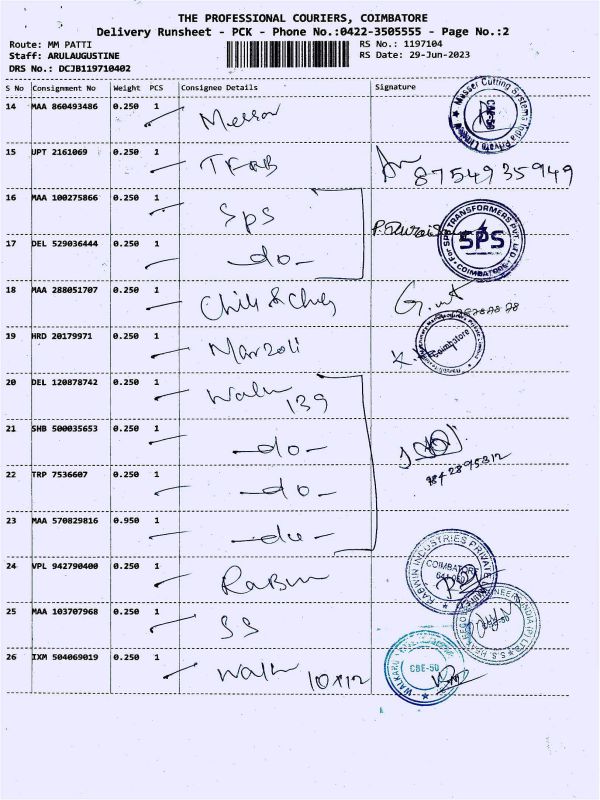 THE PROFESSIONAL COURIERS, COIMBATORE
Delivery Runsheet - PCK - Phone No.:0422-3505555 - Page No.:2
Route: MM PATTI
RS No.: 1197104
Staff: ARULAUGUSTINE
RS Date: 29-Jun-2023
DRS No.: DCJB119710402
S No Consignment No Weight PCS Consignee Details Signature
14 MAA 860493486 0.250 1
15 UPT 2161069 0.250 1
8754935949
16 MAA 100275866 0.250 1 Sps
SPS TRANSFORMERS PVT. LTD.
SPS
COIMBATORE
17 DEL 529036444 0.250 1 -do-
18 MAA 288051707 0.250 1
19 HRD 20179971 0.250 1 Marzoli
Coimbatore
20 DEL 120878742 0.250 1
139
21 SHB 500035653 0.250 1 -do-
9842895312
22 TRP 7536607 0.250 1 -do-
23 MAA 570829816 0.950 1 -do-
24 VPL 942790400 0.250 1
INDUSTRIES PRIVATE
COIMBATORE
25 MAA 103707968 0.250 1 SS
26 IXM 504069019 0.250 1
CBE-50